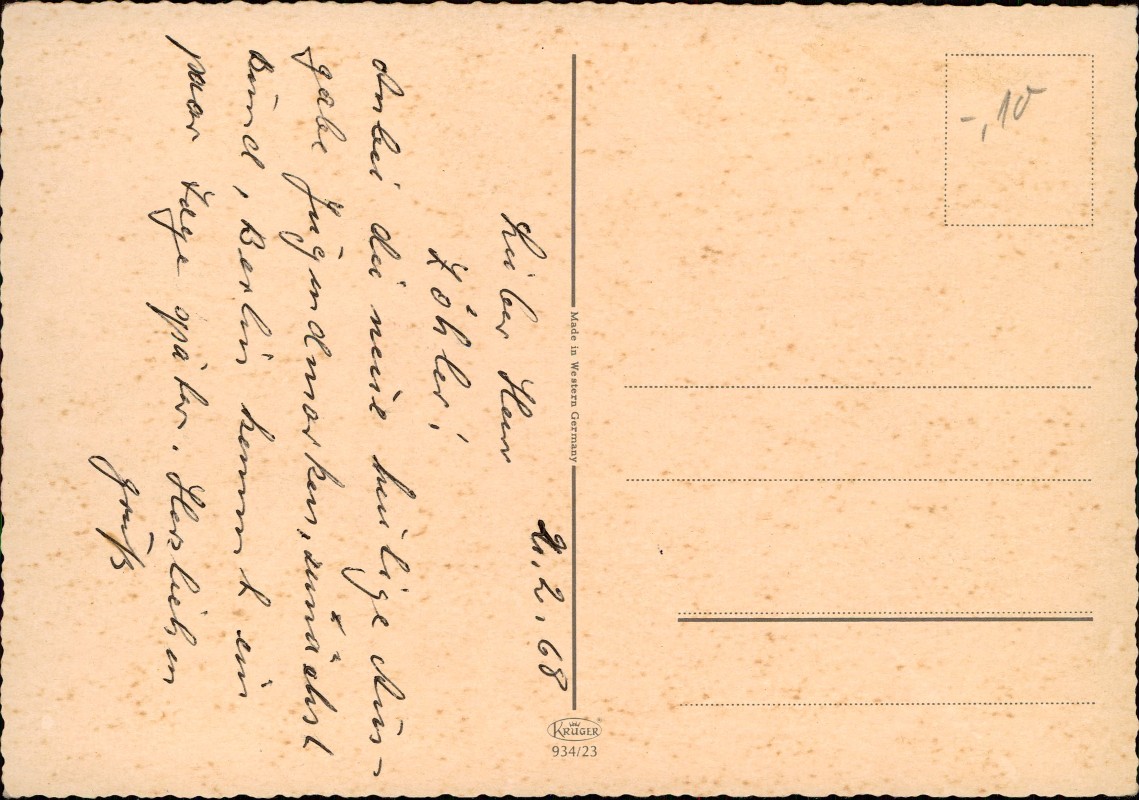 2.2.68
Lieber Herr
Töhler!
Anbei die neue heutige Aus-
gabe Jugendmarken, zunächst
Bund, Berlin kommt ein
paar Tage später. Herzlichen
Gruß
Made in Western Germany
KRÜGER
934/23
-,10